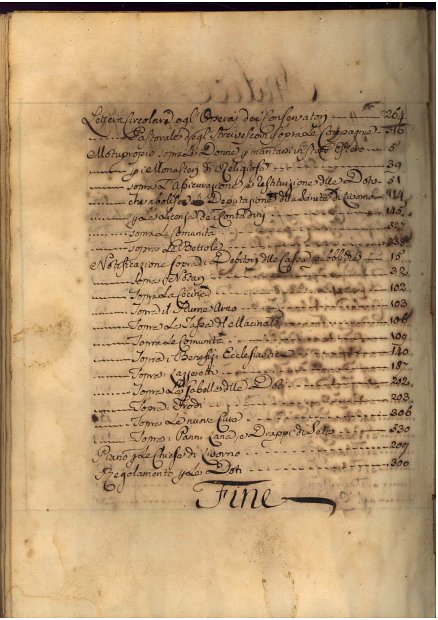 Lettera Circolare agl'Operaj dei Conservatori 264
Pastorale degl'Arcivescovi sopra le Compagnie 316
Motuproprio sopra le Donne maritate in Stato Estero 5
Monasteri di Religiose 39
sopra l'assicurazione, e restituzione delle Doti 51
che abolisce la Deputazione della Sanità di Livorno 114
p. la Licenza de Contadini 145
sopra le Comunità 327
sopra le Bettole 338
Notificazione sopra i Debitori delle Casse pubbliche 15
Sopra i Notari 32
Sopra le 102
Sopra il Fiume Arno 103
Sopra le Tasse di 106
Sopra le Comunità 109
Sopra i Benefizi Ecclesiastici 140
Sopra i Lazzeretti 187
Sopra la Gabella delle Doti 202
Sopra i Frodi 203
Sopra le nuove Cure 306
Sopra i Panni Lana, e Drappi di Seta 330
Piano p. le Chiese di Livorno 209
Regolamento p. le Doti 300
Fine